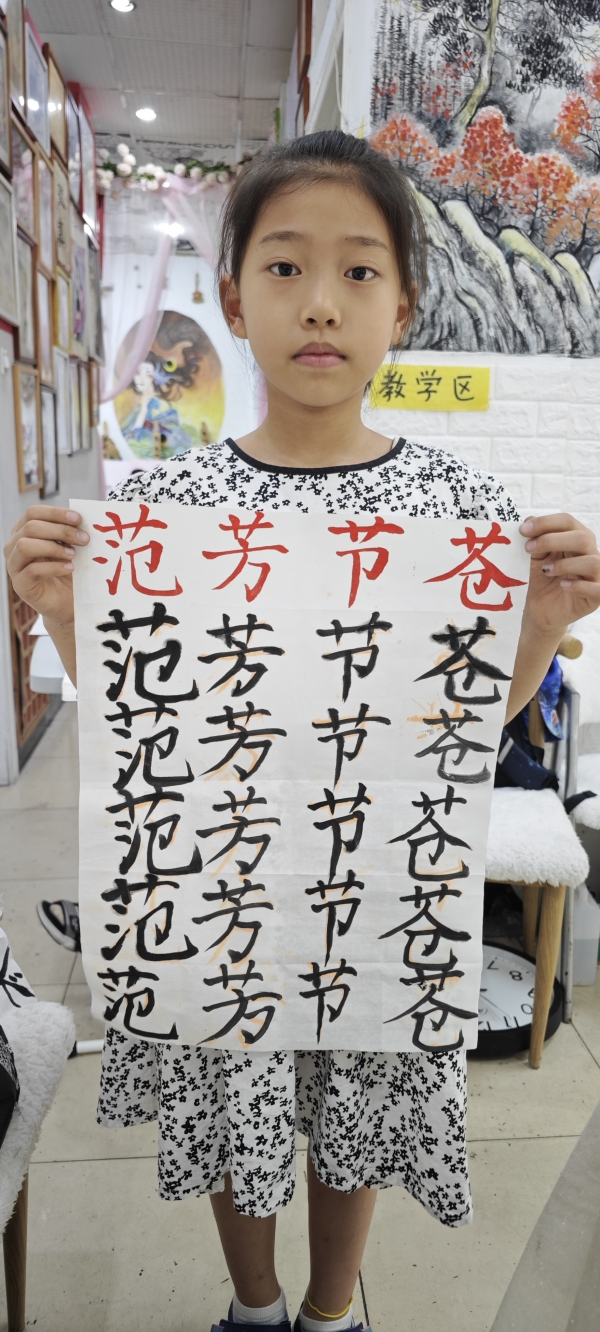 教学区
范芳节苍
范芳节苍
范芳节苍
范芳节苍
范芳节苍
范芳节苍